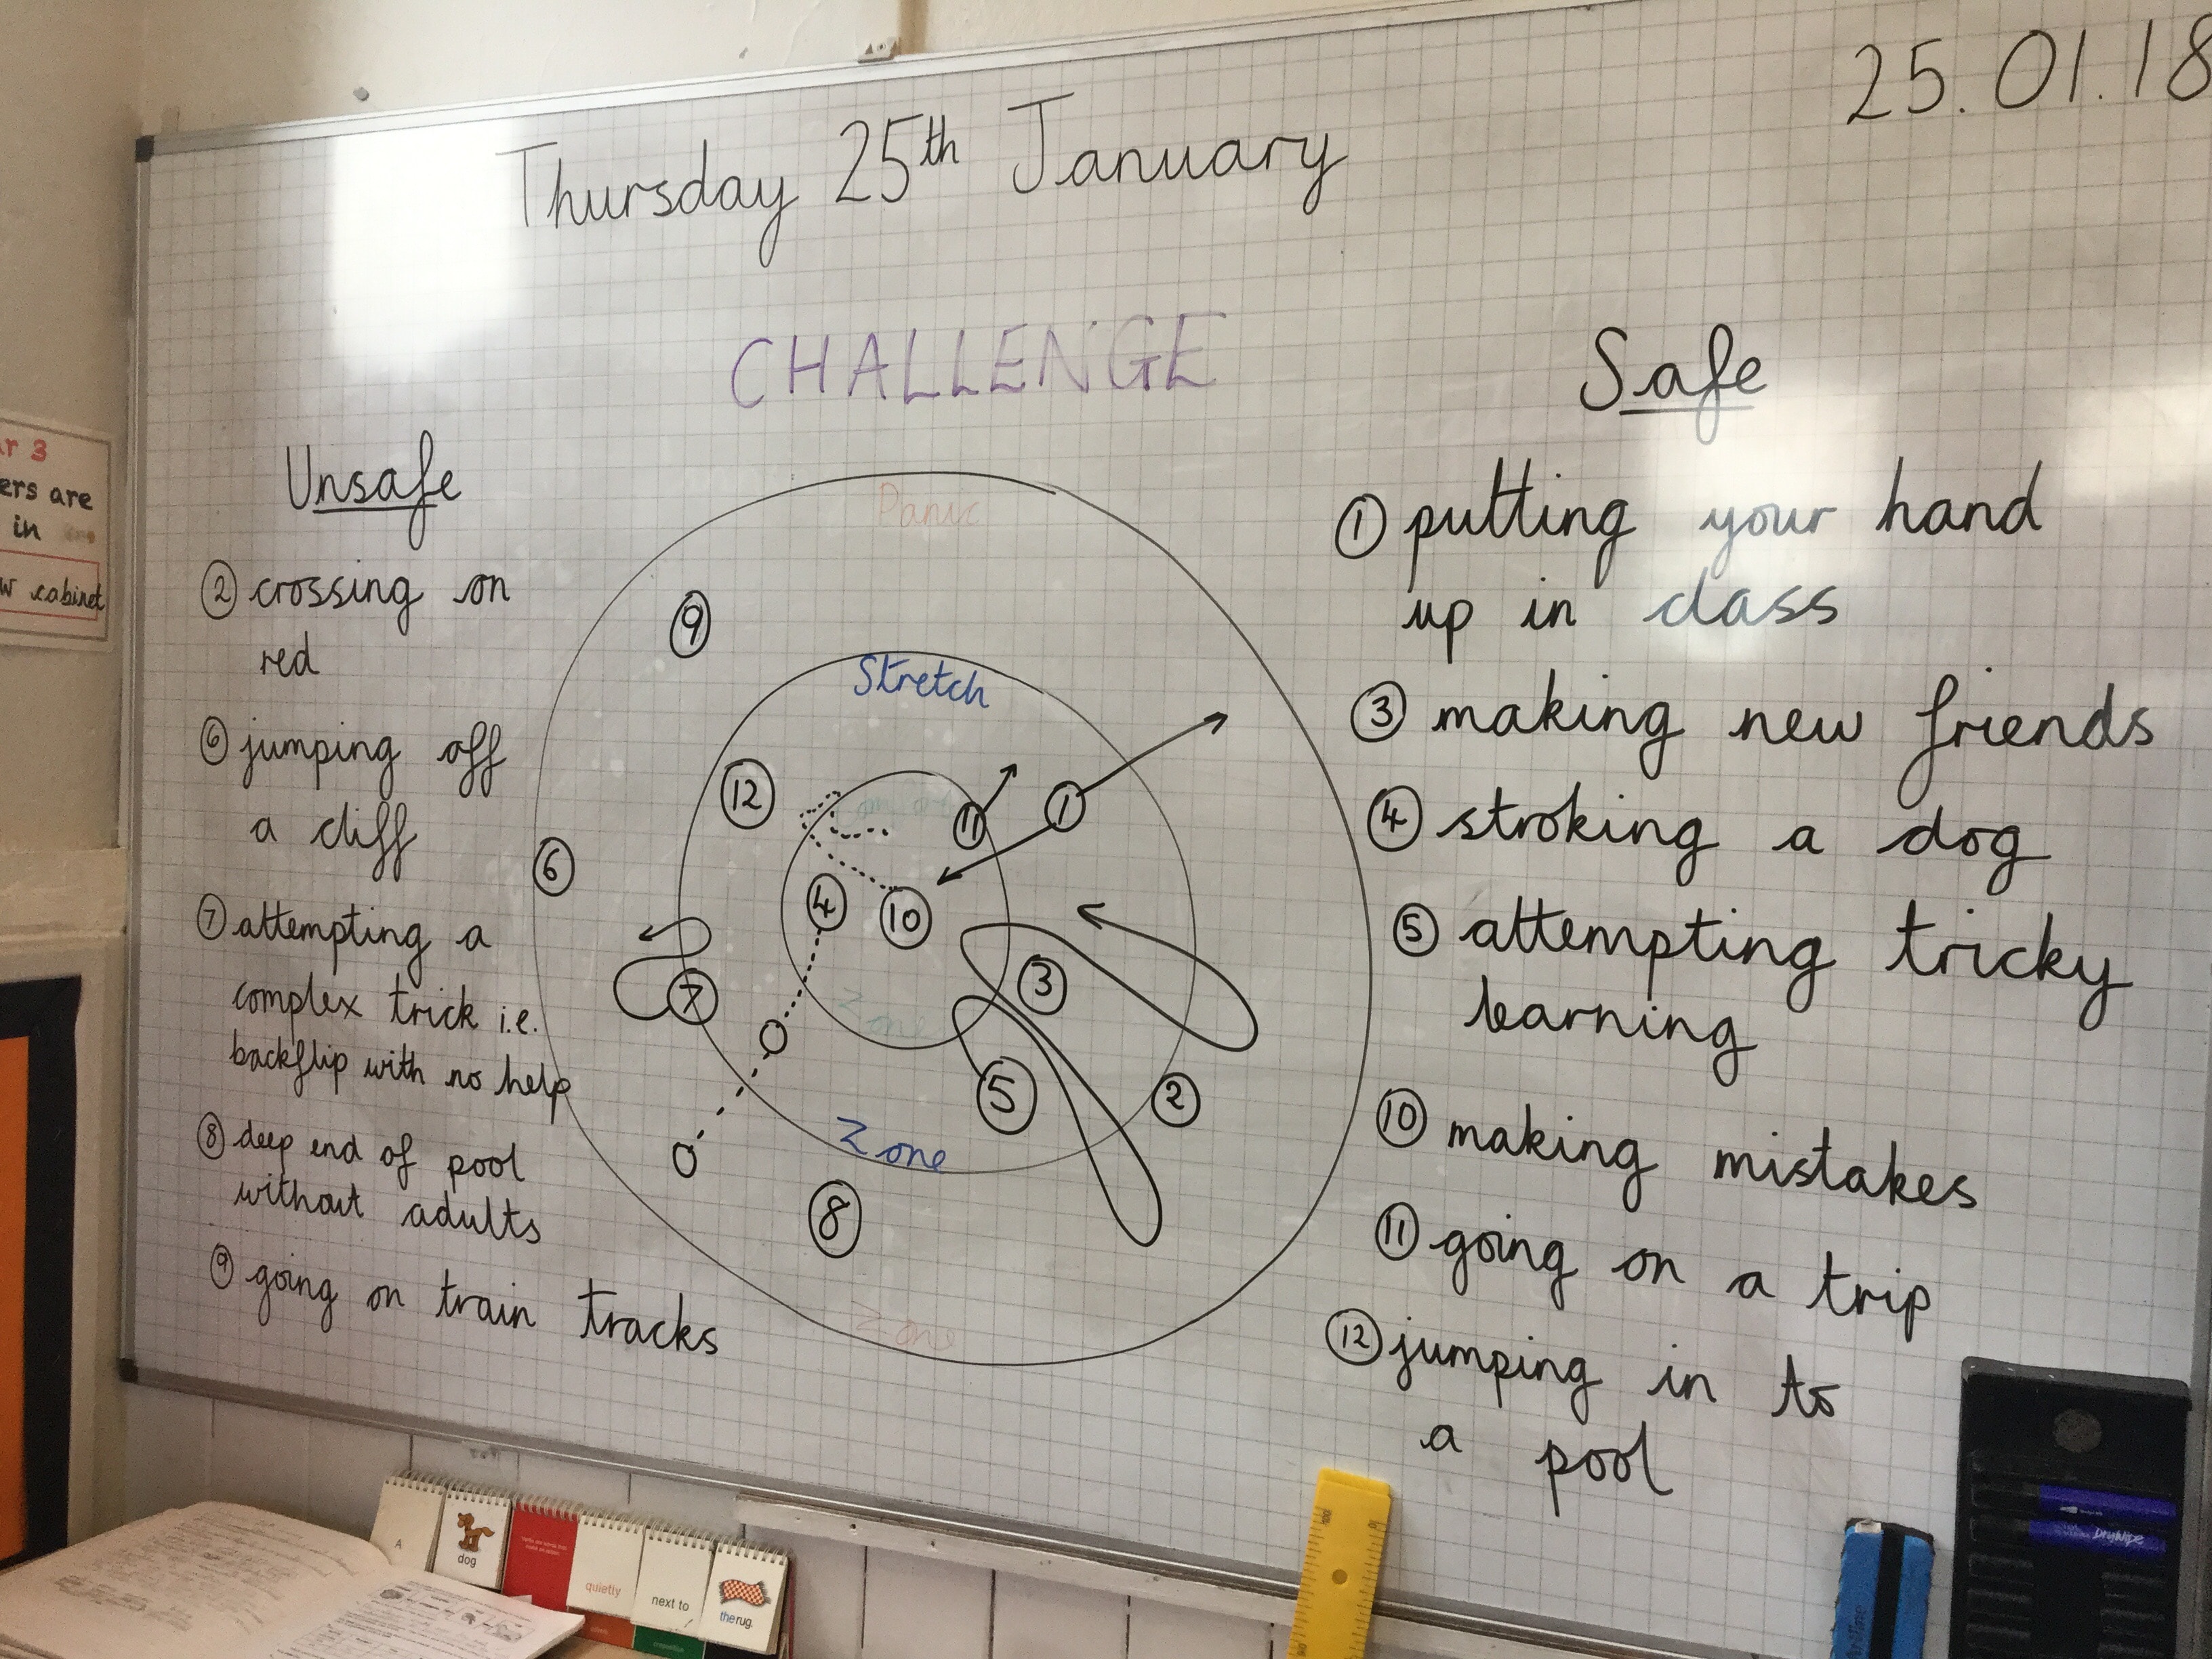 25.01.18
Thursday 25th January
CHALLENGE
Unsafe
② crossing on
red
⑥ jumping off
a cliff
⑦ attempting a
complex trick i.e.
backflip with no help
⑧ deep end of pool
without adults
⑨ going on train tracks
Panic
⑨
Stretch
⑫
⑪
①
⑥
④
⑩
⑦
③
Zone
⑤
②
Zone
⑧
Zone
Safe
① putting your hand
up in class
③ making new friends
④ stroking a dog
⑤ attempting tricky
learning
⑩ making mistakes
⑪ going on a trip
⑫ jumping in to
a pool
r 3
ers are
in
w cabinet
A
dog
quietly
next to
the rug.
100
drywipe